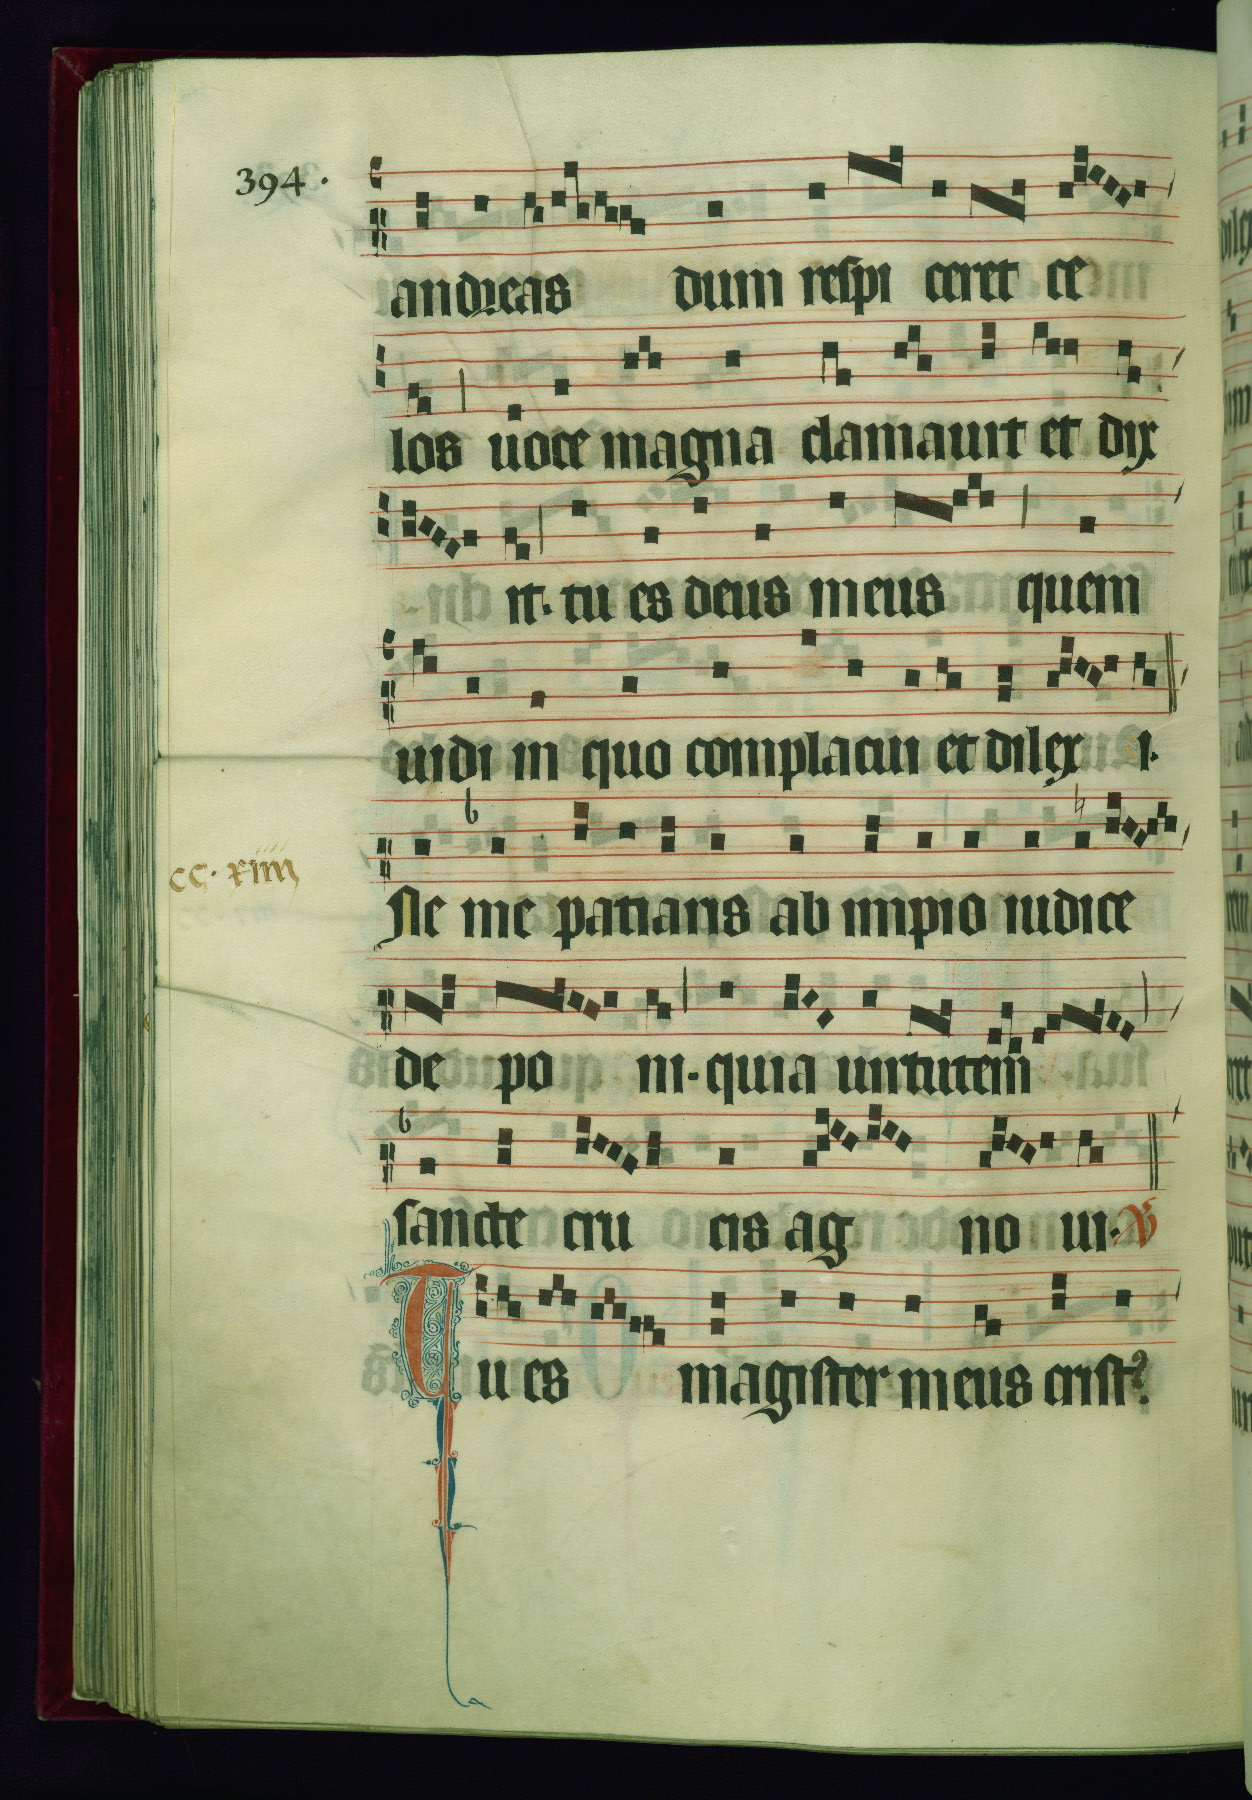 394.
andreas dum respi ceret ce
los uoce magna clamauit et dix
it. tu es deus meus quem
uidi in quo complacui et dilex i.
Ne me patiaris ab impio iudice
cc. xiiii
de po ni. quia uirtutem
sancte cru cis ag no ui. V
Tu es magister meus crist